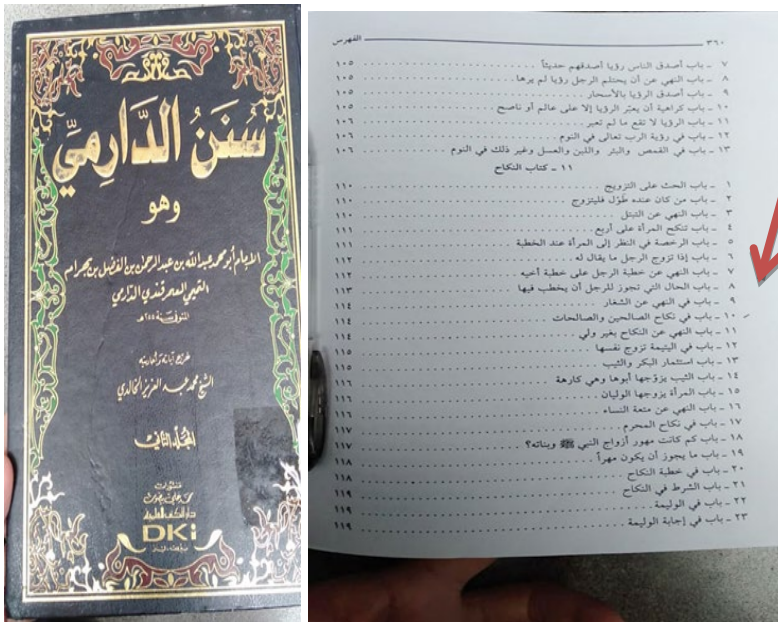 سُنَنُ الدَّارِمِيِّ
وهو
الإمام أبو محمد عبدالله بن عبدالرحمن بن الفضل بن بهرام
التميمي السمرقندي الدارمي
المتوفى سنة ٢٥٥هـ
الشيخ محمد عبد العزيز الخالدي
المجلد الثاني
منشورات
محمد علي بيضون
دار الكتب العلمية
DKi
٣٦٠ الفهرس
٧ - باب أصدق الناس رؤيا أصدقهم حديثاً ١٠٥
٨ - باب النهي عن أن يحتلم الرجل رؤيا لم يرها ١٠٥
٩ - باب أصدق الرؤيا بالأسحار ١٠٥
١٠ - باب كراهية أن يعبّر الرؤيا إلا على عالم أو ناصح ١٠٥
١١ - باب الرؤيا لا تقع ما لم تعبر ١٠٦
١٢ - باب في رؤية الرب تعالى في النوم ١٠٦
١٣ - باب في القمص والبئر واللبن والعسل وغير ذلك في النوم ١٠٦
١١ - كتاب النكاح
١ - باب الحث على التزويج ١١٠
٢ - باب من كان عنده طَوْل فليتزوج ١١٠
٣ - باب النهي عن التبتل ١١٠
٤ - باب تنكح المرأة على أربع ١١١
٥ - باب الرخصة في النظر إلى المرأة عند الخطبة ١١١
٦ - باب إذا تزوج الرجل ما يقال له ١١٢
٧ - باب النهي عن خطبة الرجل على خطبة أخيه ١١٢
٨ - باب الحال التي تجوز للرجل أن يخطب فيها ١١٣
٩ - باب في النهي عن الشغار ١١٤
١٠ - باب في نكاح الصالحين والصالحات ١١٤
١١ - باب النهي عن النكاح بغير ولي ١١٤
١٢ - باب في اليتيمة تزوج نفسها ١١٥
١٣ - باب استئمار البكر والثيب ١١٥
١٤ - باب الثيب يزوّجها أبوها وهي كارهة ١١٦
١٥ - باب المرأة يزوجها الوليان ١١٦
١٦ - باب النهي عن متعة النساء ١١٦
١٧ - باب في نكاح المحرم ١١٧
١٨ - باب كم كانت مهور أزواج النبي ﷺ وبناته؟ ١١٧
١٩ - باب ما يجوز أن يكون مهراً ١١٨
٢٠ - باب في خطبة النكاح ١١٨
٢١ - باب الشرط في النكاح ١١٩
٢٢ - باب في الوليمة ١١٩
٢٣ - باب في إجابة الوليمة ١١٩